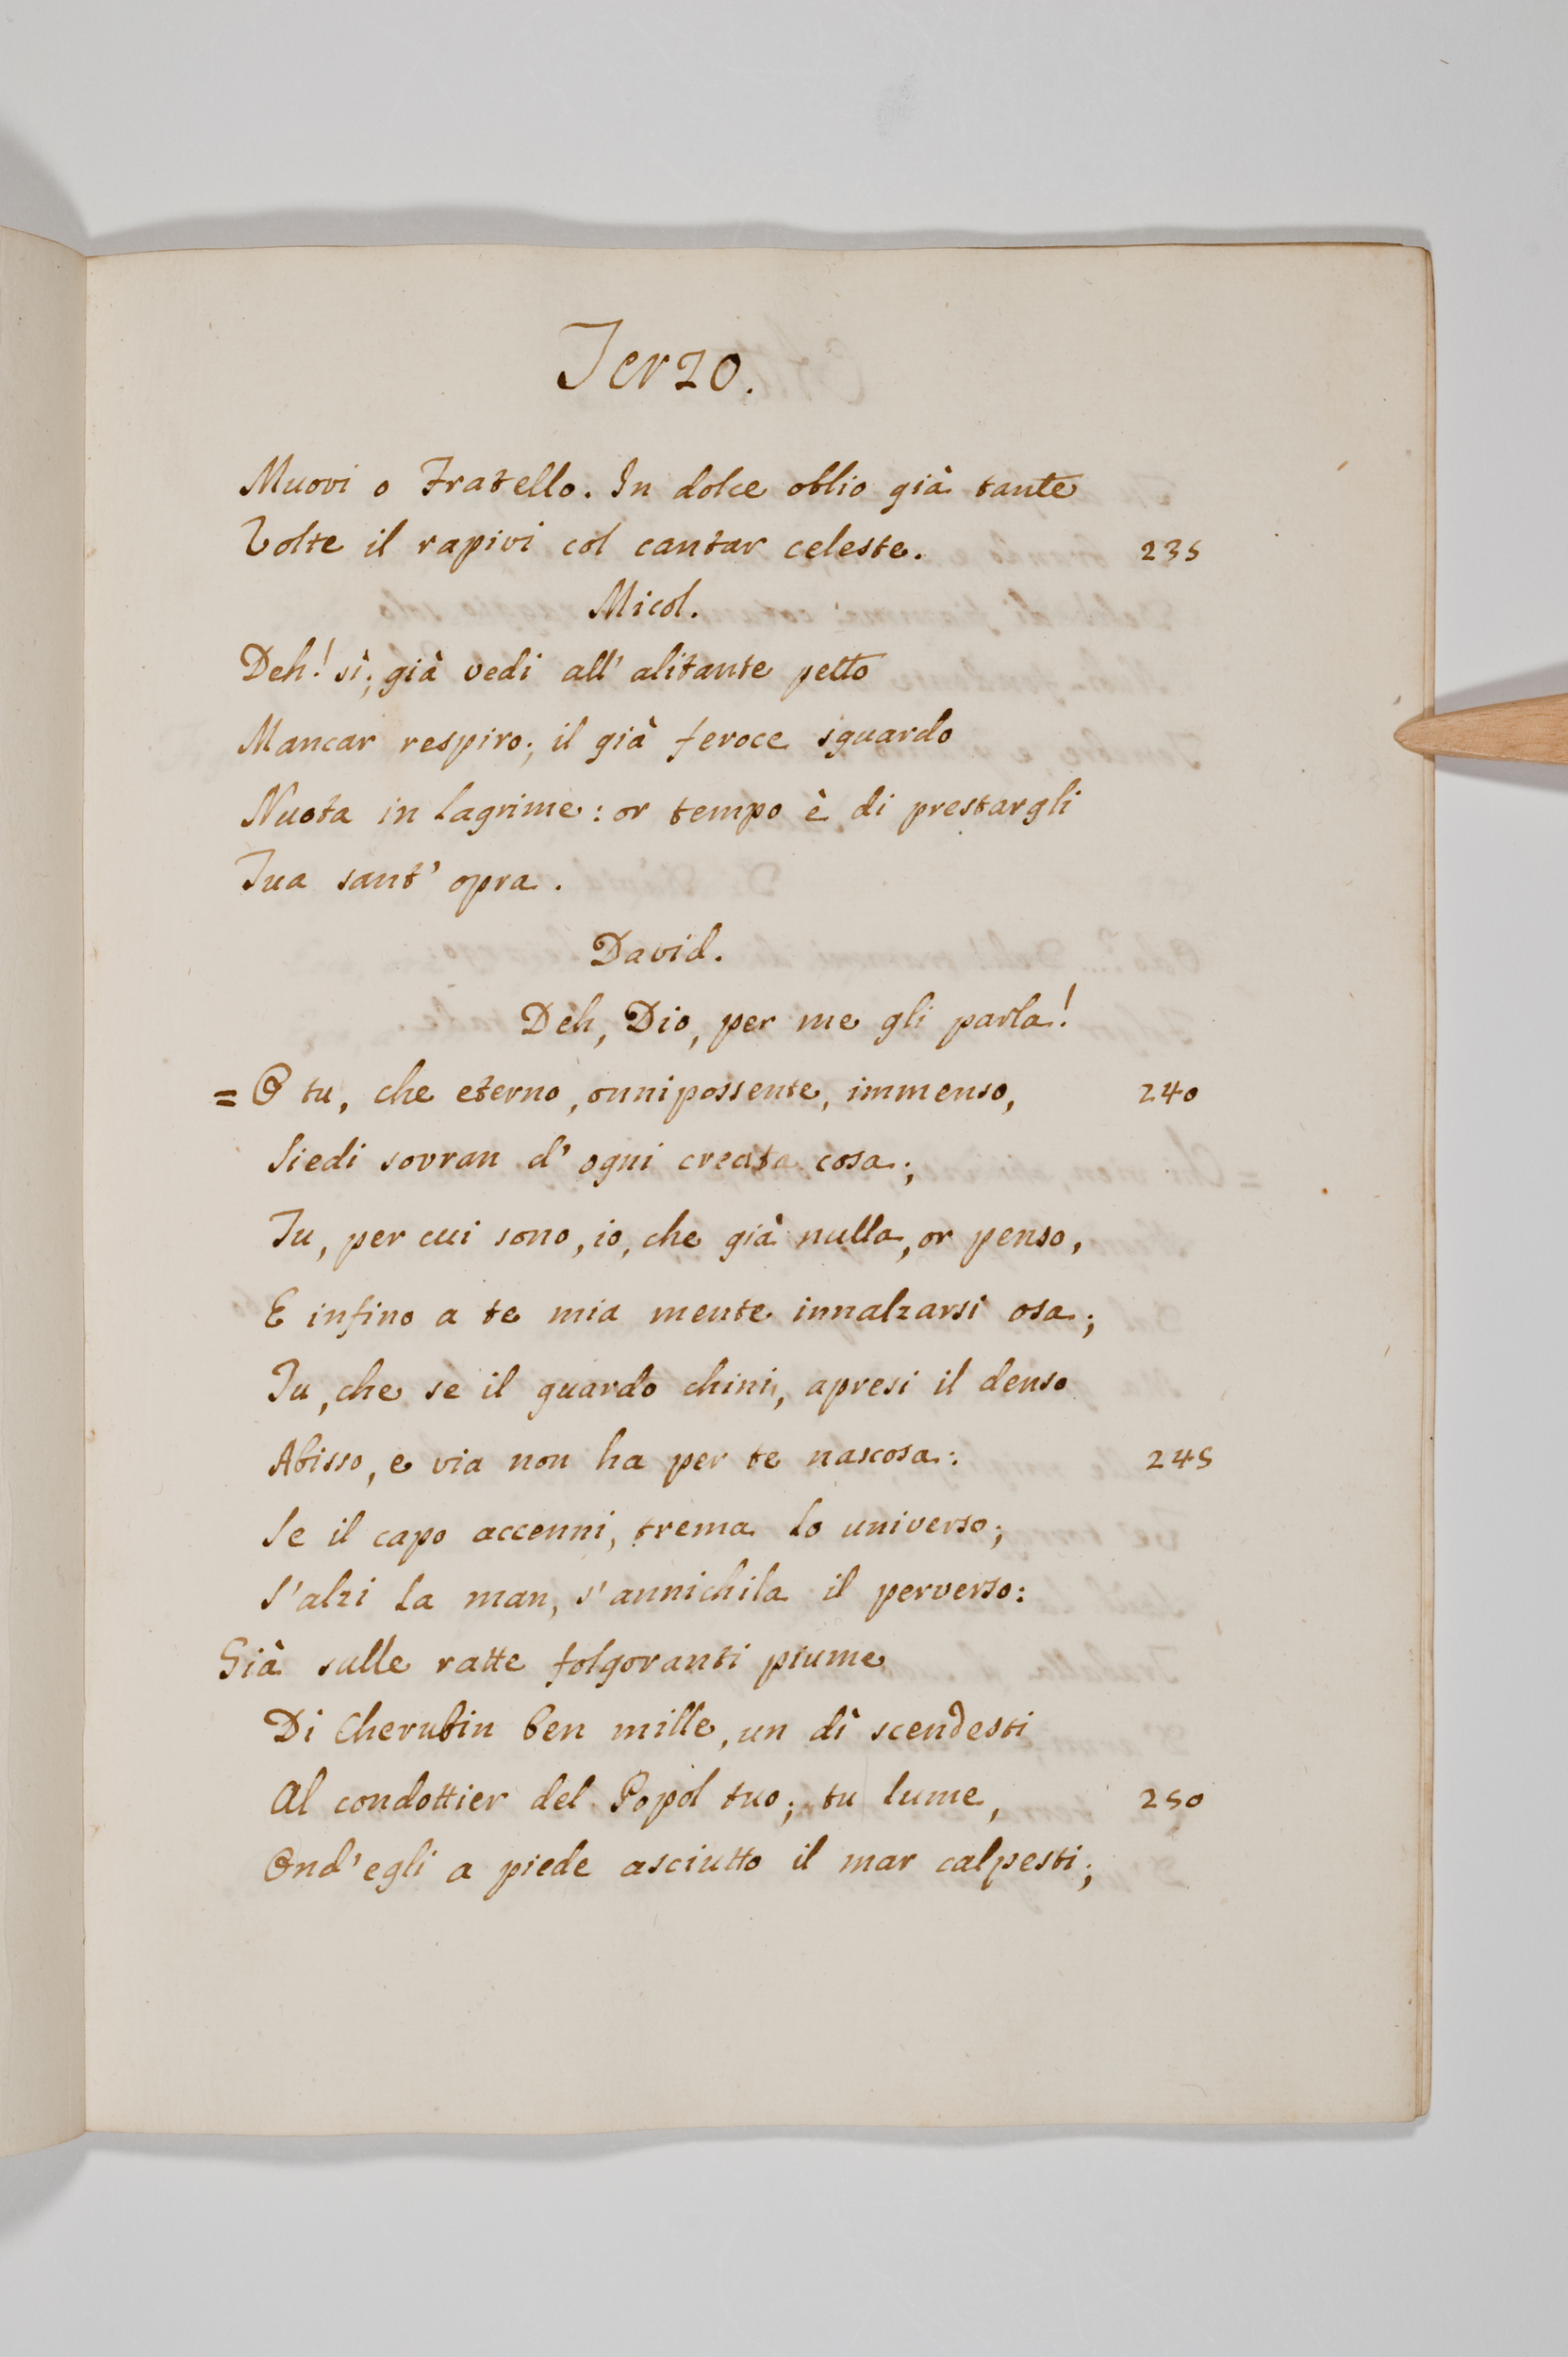 Terzo.
Muovi o Fratello. In dolce oblio già tante
Volte il rapivi col cantar celeste. 235
Micol.
Deh! sì; già vedi all' alitante petto
Mancar respiro; il già feroce sguardo
Nuota in lagrime: or tempo è di prestargli
Tua sant' opra.
David.
Deh, Dio, per me gli parla!
= O tu, che eterno, onnipossente, immenso, 240
Siedi sovran d' ogni creata cosa;
Tu, per cui sono, io, che già nulla, or penso,
E infino a te mia mente innalzarsi osa;
Tu, che se il guardo chini, apresi il denso
Abisso, e via non ha per te nascosa: 245
Se il capo accenni, trema lo universo;
S'alzi la man, s'annichila il perverso:
Già sulle ratte folgoranti piume
Di Cherubin ben mille, un dì scendesti
Al condottier del Popol tuo; tu lume, 250
Ond' egli a piede asciutto il mar calpesti;